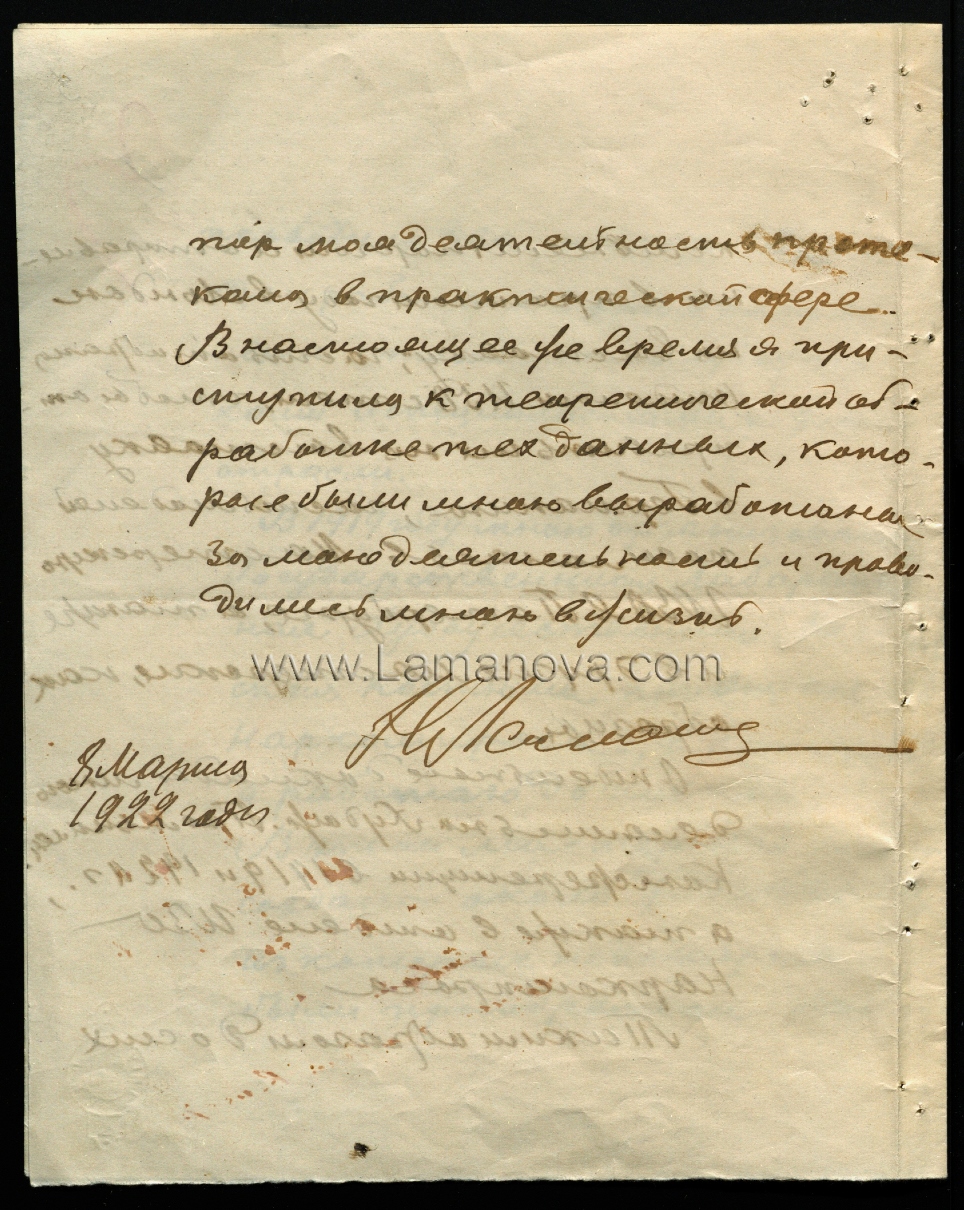 пор моя деятельность проте-
кала в практической сфере.
В настоящее же время я при-
ступила к теоретической об-
работке тех данных, кото-
рые были мною выработаны
за мою деятельность и прово-
дились мною в жизнь.
www.Lamanova.com
Н Ламанова
8 Марта
1922 года